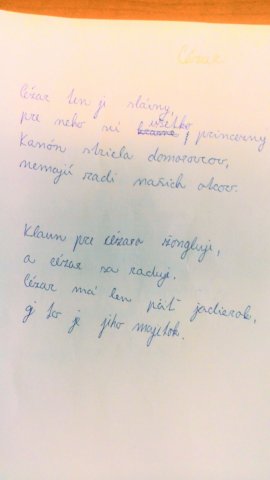 Cézar
Cézar ten je slávny,
pre neho sú všetko princezny
Kanón striela domorodcov,
nemajú radi našich otcov.
Klaun pre cézara žongluje,
a cézar sa raduje.
Cézar má len päť jadierok,
aj to je jeho majetok.